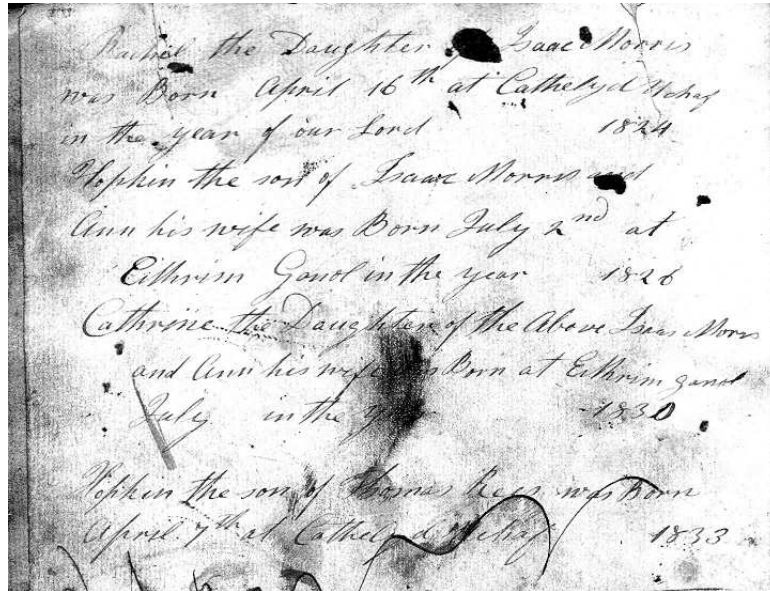 Rachel the Daughter Isaac Morris
was Born April 16th at Cathelyd Uchaf
in the year of our Lord 1824
Hopkin the son of Isaac Morris and
Ann his wife was Born July 2nd at
Eithrim Ganol in the year 1826
Cathrine the Daughter of the Above Isaac Morris
and Ann his wife was Born at Eithrim ganol
July in the year 1830
Hopkin the son of Thomas Rees was Born
April 7th at Cathelyd Uchaf 1833